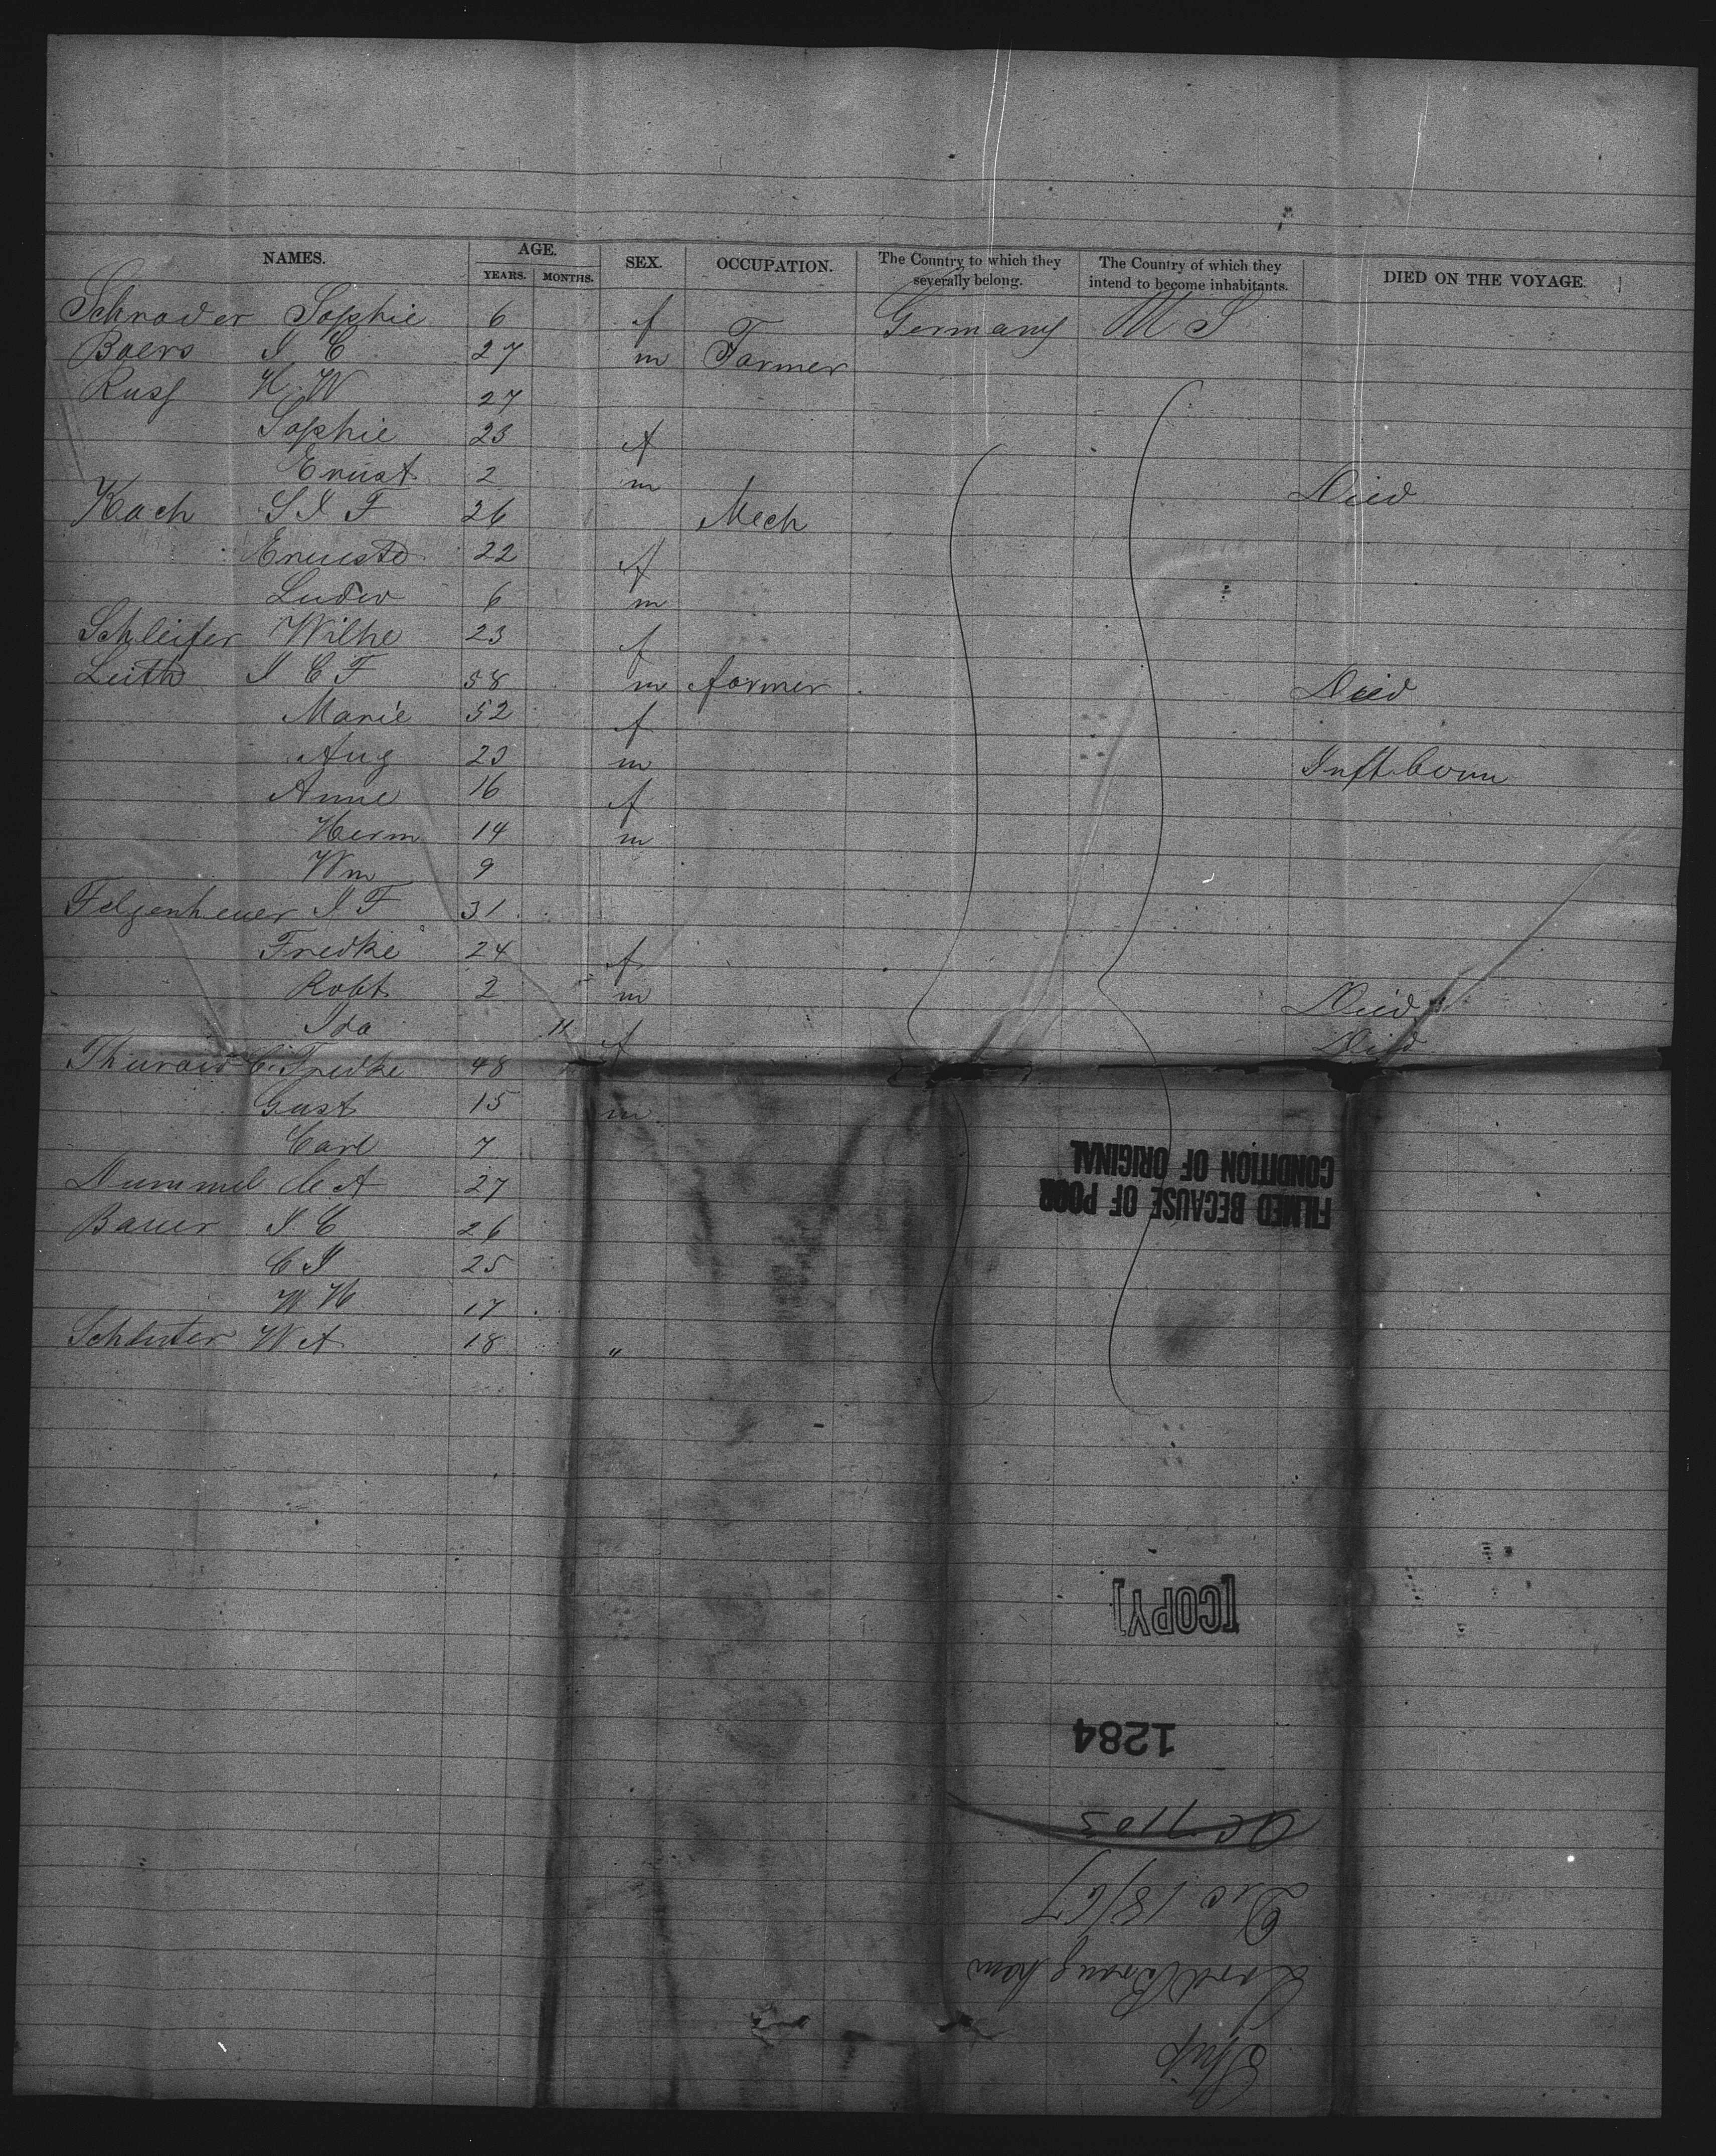 NAMES. AGE. SEX. OCCUPATION. The Country to which they severally belong. The Country of which they intend to become inhabitants. DIED ON THE VOYAGE.
YEARS. MONTHS.
Schrader Sophie 6 f Germany U S
Baers I C 27 m Farmer
Rusf H. W 27
Sophie 23 f
Ernst 2 m Died
Kach S I F 26 Mech
Ernuste 22 f
Ludw 6 m
Schleifer Wilhe 23 f
Leith I C F 58 m farmer Died
Marie 52 f
Aug 23 m Inft born
Anne 16 f
Herm 14 m
Wm 9
Felgenheuer I F 31
Fredke 24 f
Robt 2 m Died
Ida 11 f Died
C. Fredke 48
Gust 15 m
Carl 7
Nummel C A 27
Bauer I C 26
C I 25
W H 17
Schluter W A 18 "
FILMED BECAUSE OF POOR
CONDITION OF ORIGINAL
[COPY]
1284
Ship
Lord Brougham
Dec 18/67